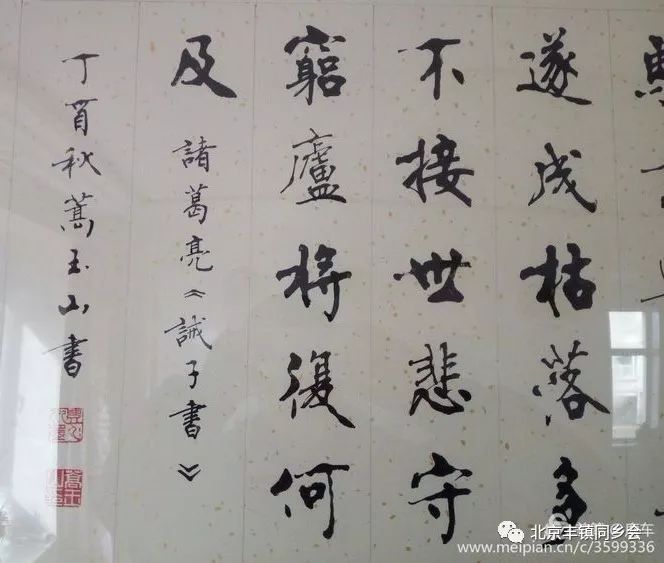 遂成枯落多
不接世悲守
窮廬將復何
及 諸葛亮《誡子書》
丁酉秋蒿玉山書
北京丰镇同乡会
www.meipian.cn/c/3599336